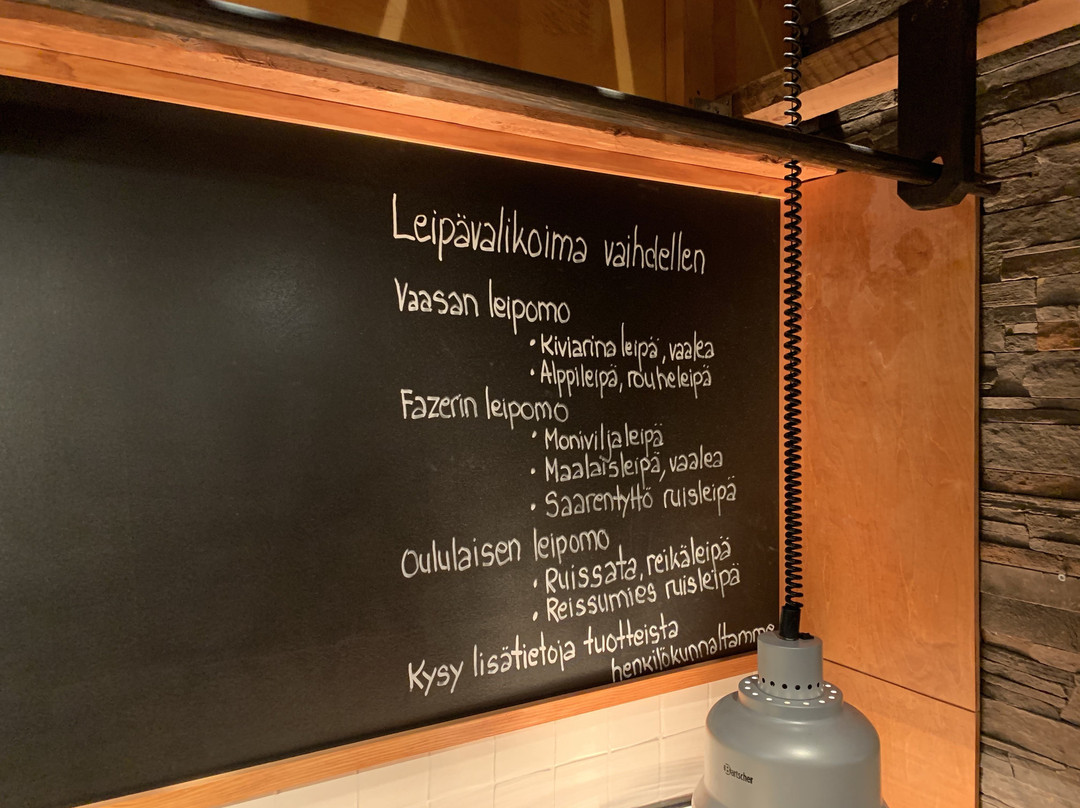 Leipävalikoima vaihdellen
Vaasan leipomo
• Kiviarina leipä, vaalea
• Alppileipä, rouheleipä
Fazerin leipomo
• Moniviljaleipä
• Maalaisleipä, vaalea
• Saarentyttö ruisleipä
Oululaisen leipomo
• Ruissata, reikäleipä
• Reissumies ruisleipä
Kysy lisätietoja tuotteista
henkilökunnaltamme
Bartscher